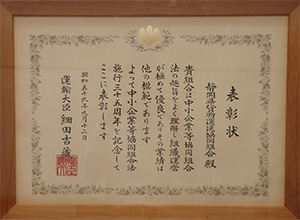 表彰状
静岡県貨物運送協同組合 殿
貴組合は中小企業等協同組合
法の趣旨をよく理解し組織運営
が極めて優良でありその業績は
他の模範であります
よって中小企業等協同組合法
施行三十五周年を記念して
ここに表彰します
昭和五十九年
運輸大臣 細田吉藏